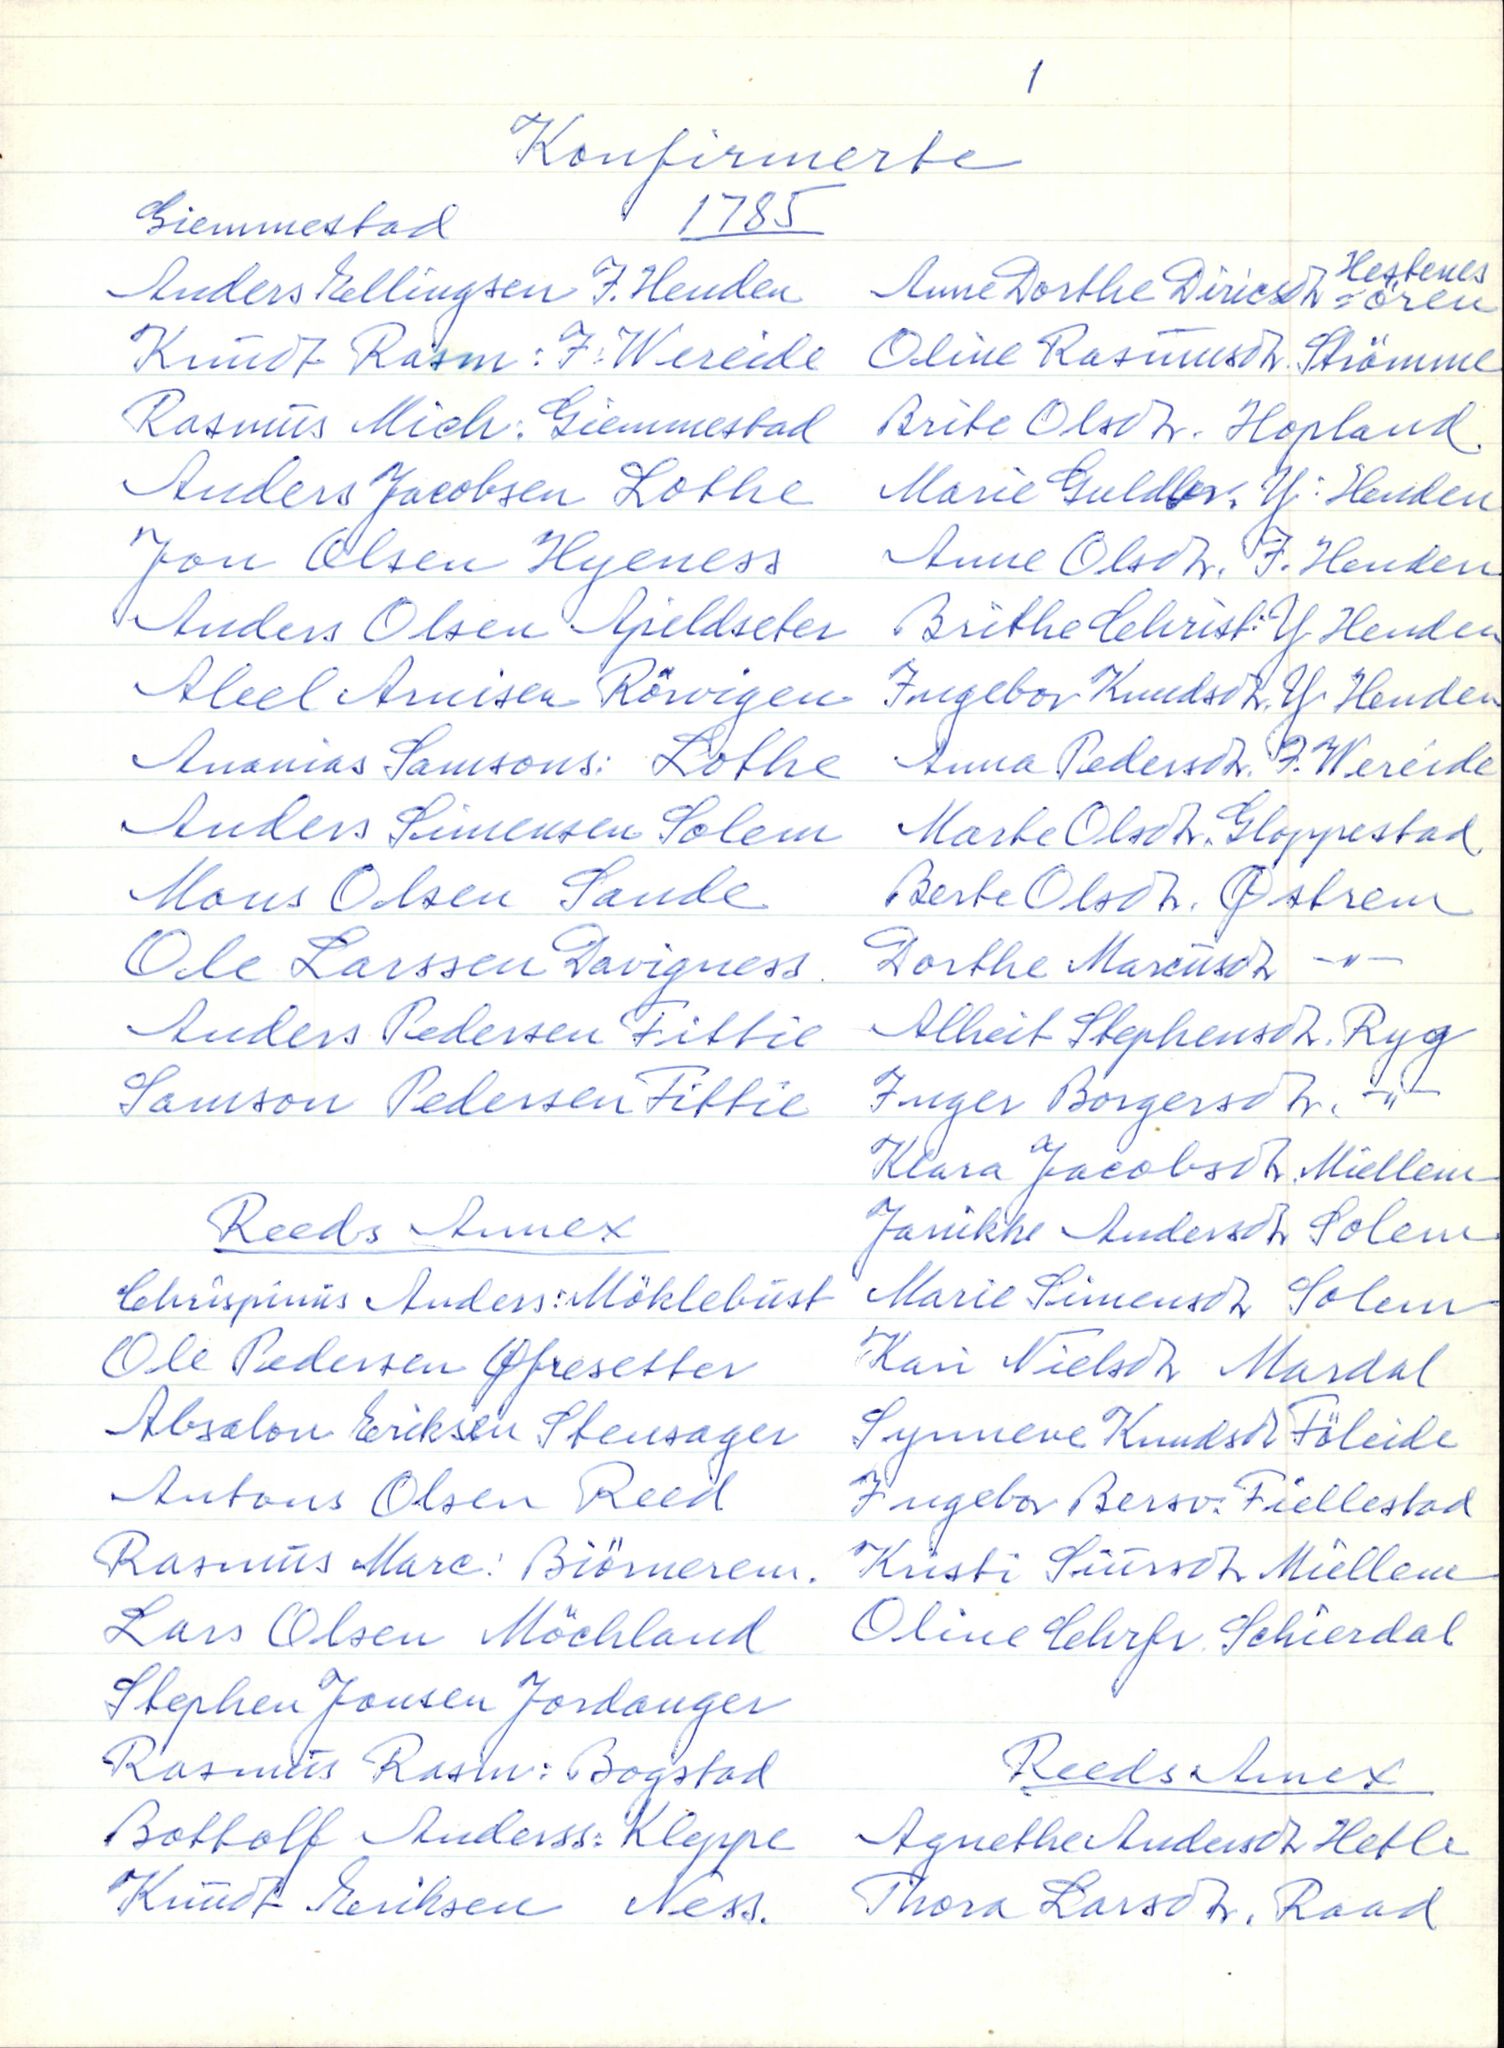 1
Konfirmerte
1785
Giemmestad
Anders Ellingsen F. Henden
Knudt Rasm: F: Wereide
Rasmus Mich: Giemmestad
Anders Jacobsen Lothe
Jon Olsen Hyeness
Anders Olsen Apeldseter
Aleel Arnisen Rörvigen
Ananias Samsons: Lothe
Anders Simensen Solem
Mons Olsen Sande
Ole Larssen Davigness
Anders Pedersen Fittie
Samson Pedersen Fittie
Reeds Annex
Chrispinus Anders: Möklebust
Ole Pedersen Øfresetter
Absalon Eriksen Stensager
Antons Olsen Reed
Rasmus Marc: Biörnerem.
Lars Olsen Möchland
Stephen Jonsen Jordanger
Rasmus Rasm: Bogstad
Bottolf Anderss: Kleppe
Knudt Eriksen Ness.
Anne Dorthe Diricsdtr Hestenes
=ören
Oline Rasmusdtr. Strömme
Brite Olsdtr. Hopland.
Marie Guldbr. Y: Henden
Anne Olsdtr. F. Henden
Brithe Christ: Y Henden
Ingebor Knudsdtr. Y Henden
Anna Pedersdtr. F. Wereide
Marte Olsdtr. Gloppestad.
Berte Olsdtr. Østrem
Dorthe Marcusdtr -"-
Alheit Stephensdtr. Ryg
Inger Borgersdtr. -"-
Klara Jacobsdtr. Miellem
Janikke Andersdtr Solem
Marie Simensdtr Solem
Kari Nielsdtr Mardal
Synneve Knudsdtr Föleide
Ingebor Bersv: Fiellestad
Kristi Siursdtr Miellem
Oline Chrfr. Schierdal
Reeds Annex
Agnethe Andersdtr Hetle
Thora Larsdtr. Raad